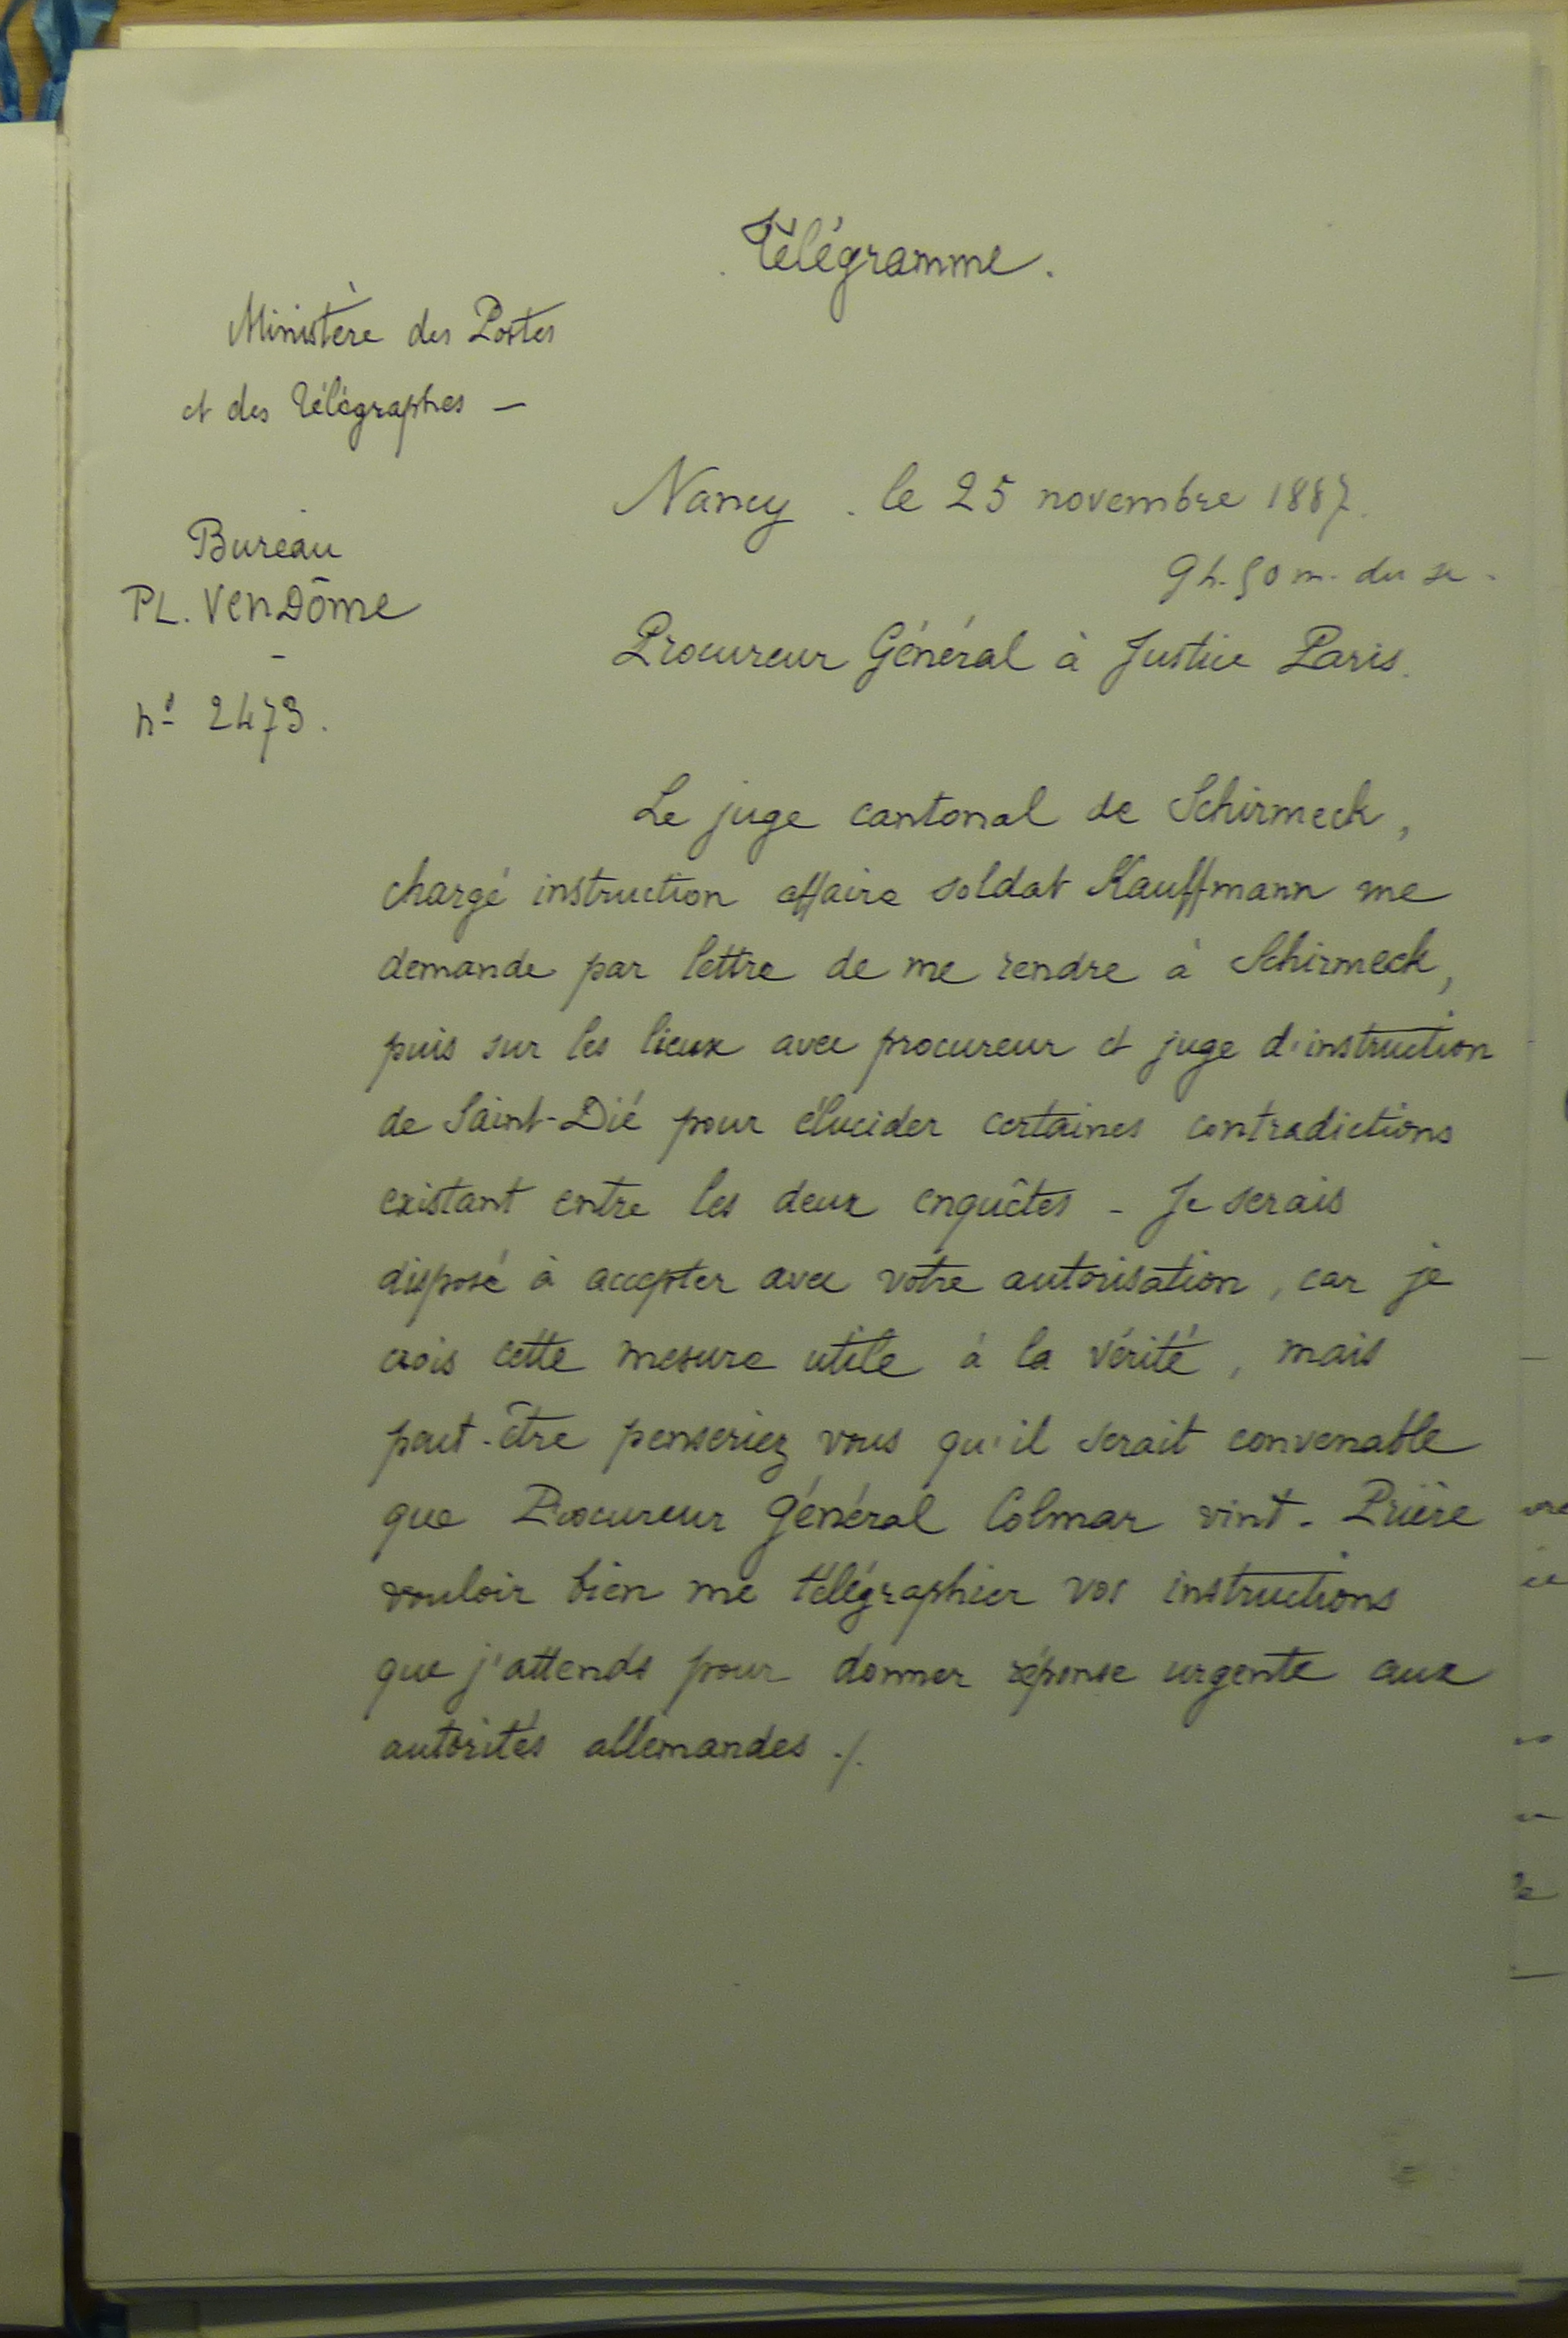 Télégramme.
Ministère des Postes
et des Télégraphes —
Nancy. le 25 novembre 1887.
9 h. 50 m. du s.
Bureau
PL. VENDÔME
-
Procureur Général à Justice Paris.
nº 2473.
Le juge cantonal de Schirmeck,
chargé instruction affaire soldat Kauffmann me
demande par lettre de me rendre à Schirmeck,
puis sur les lieux avec procureur et juge d'instruction
de Saint-Dié pour élucider certaines contradictions
existant entre les deux enquêtes - Je serais
disposé à accepter avec votre autorisation, car je
crois cette mesure utile à la vérité, mais
peut-être penseriez vous qu'il serait convenable
que Procureur Général Colmar vint - Prière
vouloir bien me télégraphier vos instructions
que j'attends pour donner réponse urgente aux
autorités allemandes ./.